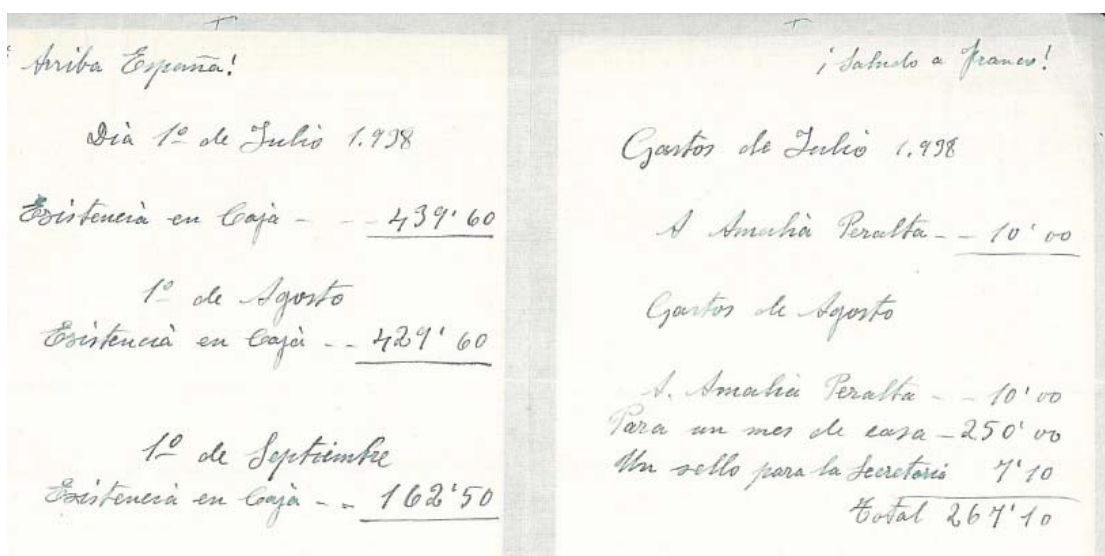 ¡Arriba España!
Dia 1º de Julio 1.938
Existencia en Caja - - - 439'60
1º de Agosto
Existencia en Caja - - 429'60
1º de Septiembre
Existencia en Caja - - 162'50
¡Saludo a Franco!
Gastos de Julio 1.938
A Amalia Peralta - - 10'00
Gastos de Agosto
A. Amalia Peralta - - 10'00
Para un mes de casa - 250'00
Un sello para la Secretoria 7'10
Total 267'10